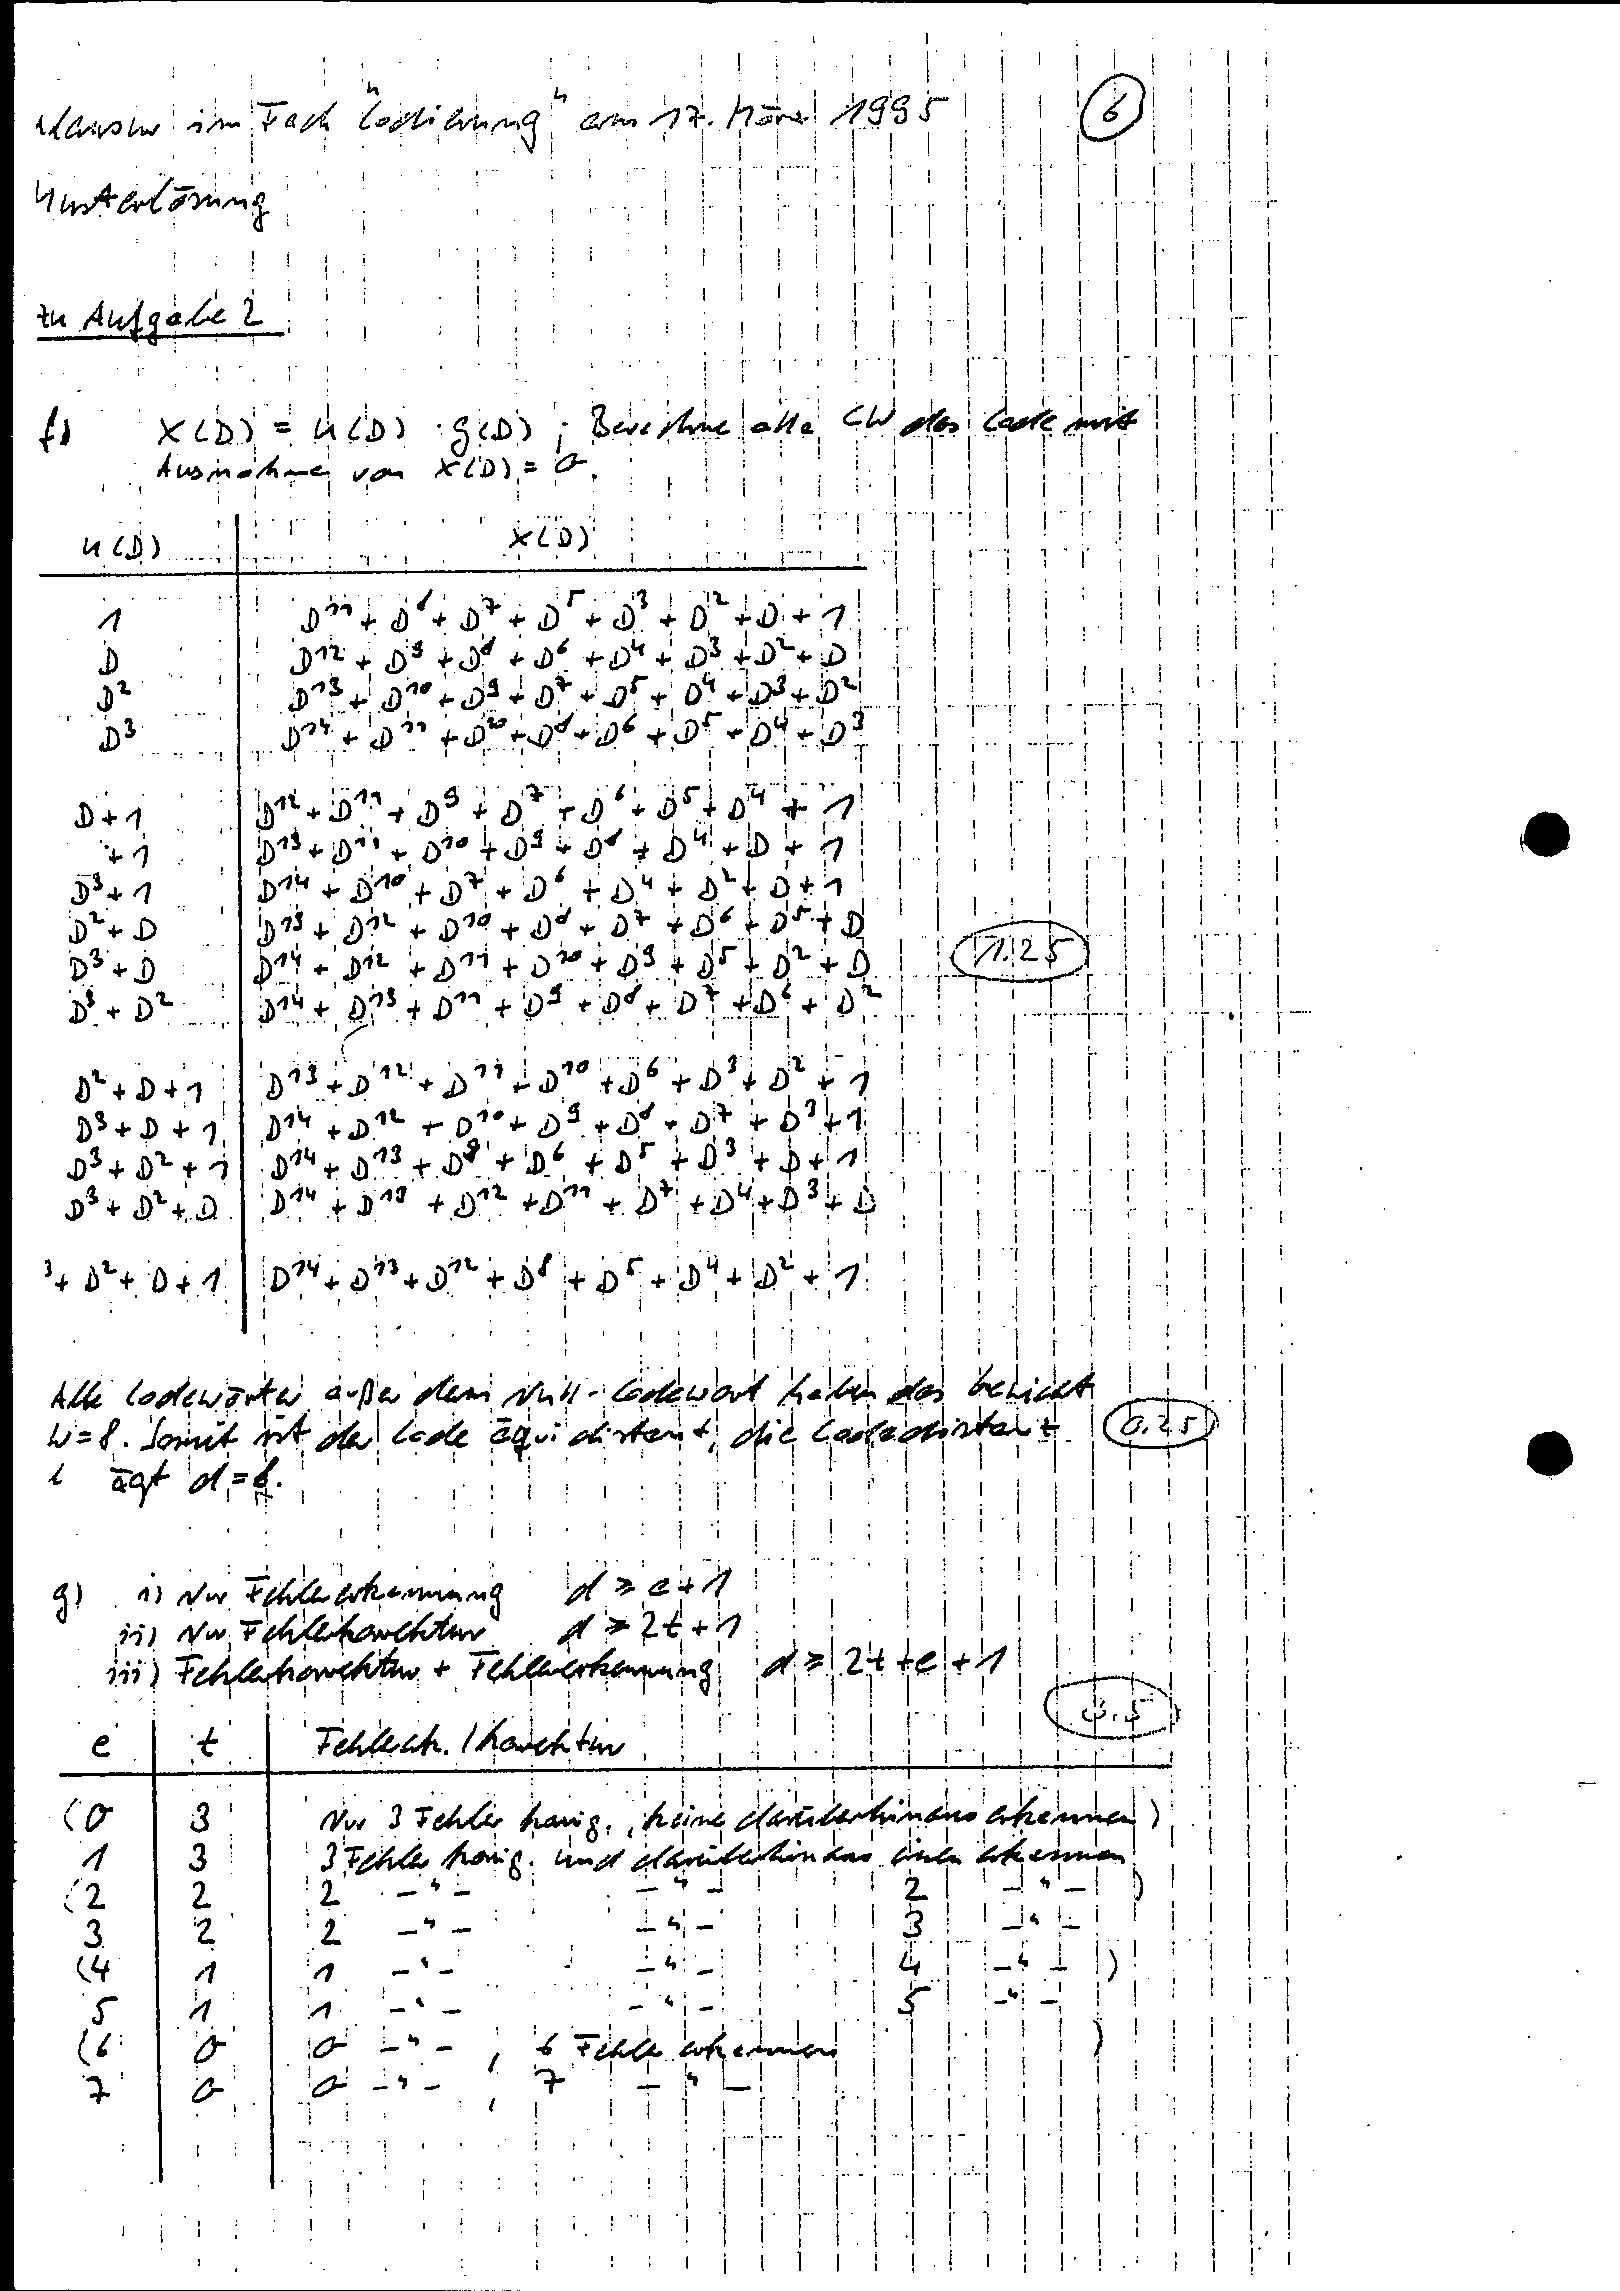 Klausur im Fach "Codierung" am 17. März 1995 6
Musterlösung
zu Aufgabe 2
f) X(D) = u(D) · g(D) ; Berechne alle CW des Code mit
Ausnahme von X(D) = 0.
u(D) X(D)
1 D¹¹ + D⁸ + D⁷ + D⁵ + D³ + D² + D + 1
D D¹² + D⁹ + D⁸ + D⁶ + D⁴ + D³ + D² + D
D² D¹³ + D¹⁰ + D⁹ + D⁷ + D⁵ + D⁴ + D³ + D²
D³ D¹⁴ + D¹¹ + D¹⁰ + D⁸ + D⁶ + D⁵ + D⁴ + D³
D + 1 D¹² + D¹¹ + D⁹ + D⁷ + D⁶ + D⁵ + D⁴ + 1
+ 1 D¹³ + D¹¹ + D¹⁰ + D⁹ + D⁸ + D⁴ + D + 1
D³ + 1 D¹⁴ + D¹⁰ + D⁷ + D⁶ + D⁴ + D² + D + 1
D² + D D¹³ + D¹² + D¹⁰ + D⁸ + D⁷ + D⁶ + D⁵ + D
D³ + D D¹⁴ + D¹² + D¹¹ + D¹⁰ + D⁹ + D⁵ + D² + D 1.25
D³ + D² D¹⁴ + D¹³ + D¹¹ + D⁹ + D⁸ + D⁷ + D⁶ + D²
D² + D + 1 D¹³ + D¹² + D¹¹ + D¹⁰ + D⁶ + D³ + D² + 1
D³ + D + 1 D¹⁴ + D¹² + D¹⁰ + D⁹ + D⁸ + D⁷ + D³ + 1
D³ + D² + 1 D¹⁴ + D¹³ + D⁹ + D⁶ + D⁵ + D³ + D + 1
D³ + D² + D D¹⁴ + D¹³ + D¹² + D¹¹ + D⁷ + D⁴ + D³ + D
³ + D² + D + 1 D¹⁴ + D¹³ + D¹² + D⁸ + D⁵ + D⁴ + D² + 1
Alle Codewörter außer dem Null-Codewort haben das Gewicht
w = 8. Somit ist der Code äquidistant, die Codedistanz 0.25
ägt d = 8.
g) i) Nur Fehlererkennung d ≥ e + 1
ii) Nur Fehlerkorrektur d ≥ 2t + 1
iii) Fehlerkorrektur + Fehlererkennung d ≥ 2t + e + 1
0.5
e t Fehlererk. / korrektur
(0 3 Nur 3 Fehler korrig., keine darüberhinaus erkennen)
1 3 3 Fehler korrig. und darüberhinaus einen erkennen
(2 2 2 -"- -"- 2 -"- )
3 2 2 -"- -"- 3 -"-
(4 1 1 -"- -"- 4 -"- )
5 1 1 -"- -"- 5 -"-
(6 0 0 -"- , 6 Fehler erkennen )
7 0 0 -"- , 7 -"-